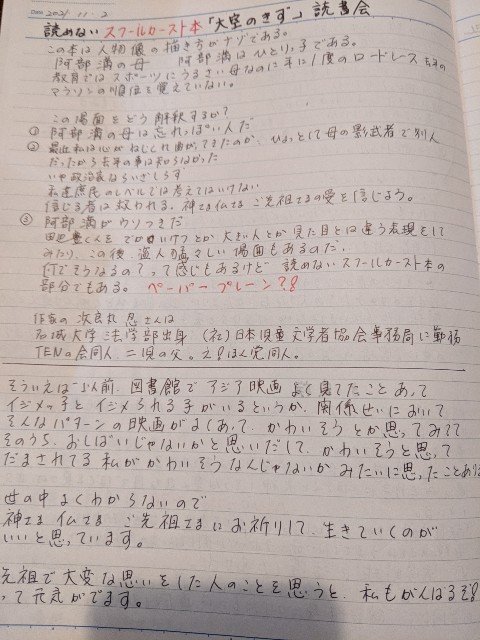 Date 2021 11・2
読めないスクールカースト本「大空のきず」読書会
この本は人物像の描き方がナゾである。
阿部満の母 阿部満はひとりっ子である。
教育ではスポーツにうるさい母なのに年に1度のロードレース 去年の
マラソンの順位を覚えていない。
この場面をどう解釈するか?
① 阿部満の母は忘れっぽい人だ
② 最近私は心がねじくれ曲がってきたのか、ひょっとして母の影武者で別人
だったから去年の事は知らなかった
いや政治家ならいざしらず
私達庶民のレベルでは考えてはいけない
信じる者は救われる。神さま仏さまご先祖さまの愛を信じよう。
③ 阿部満がウソつきだ
田辺豊くんを でかいけつとか 大きい人とか 見た目とは違う表現をして
みたり、この後、盗人猛々しい場面もあるのだ。
何でそうなるの?って感じもあるけど 読めないスクールカースト本の
部分でもある。 ペーパープレーン?!
作者の 次良丸 忍さんは
名城大学 法学部出身 (社)日本児童文学者協会事務局に勤務
TENの会同人、二児の父。えんほん党同人。
そういえば一ぷん前、図書館でアジア映画よく見てたことあって
イジメっ子とイジメられる子がいるというか、関係せいにおいて
そんなパターンの映画がよくあって、かわいそうとか思ってみてて
そのうち、おしばいじゃないかと思いだして、かわいそうと思って
だまされてる私がかわいそうなんじゃないかみたいに思ったことあり
世の中よくわからないので
神さま 仏さま ご先祖さまにお祈りして、生きていくのが
いいと思っています。
先祖で大変な思いをした人のことを思うと、私もがんばるぞ!
って元気がでます。